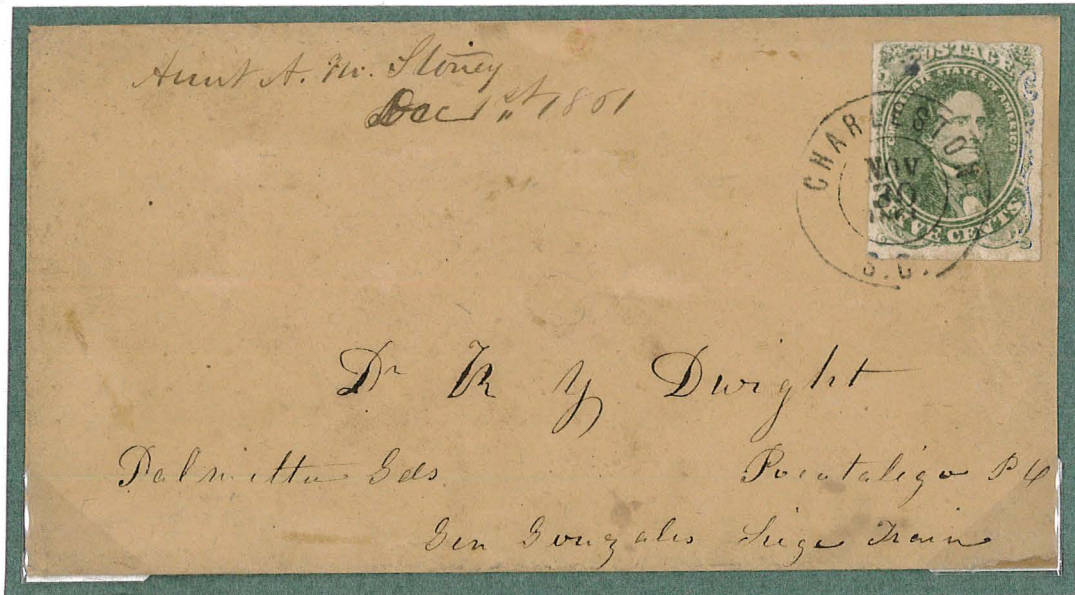 Aunt A. M. Stoney
Dec 1st 1861
POSTAGE
CONFEDERATE STATES OF AMERICA
FIVE CENTS
CHARLESTON
NOV
30
S.C.
Dr R Y Dwight
Palmitto Gds
Pocotaligo P O
Gen Gonzales Siege Train